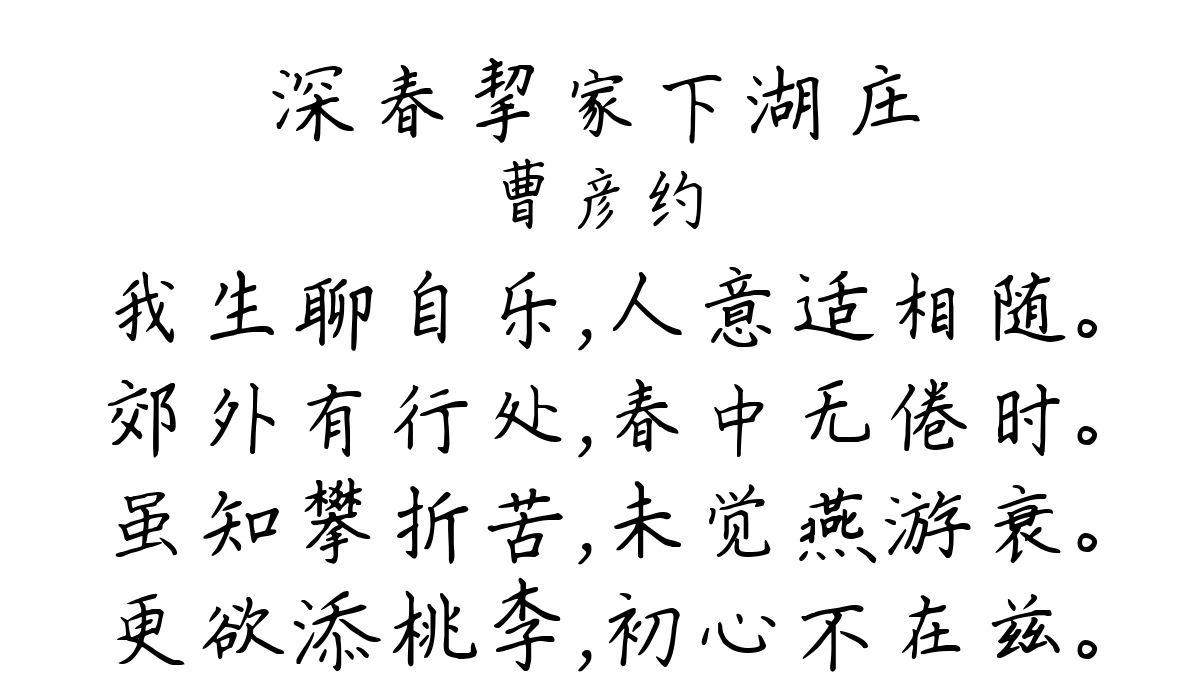 深春挈家下湖庄
曹彦约
我生聊自乐,人意适相随。
郊外有行处,春中无倦时。
虽知攀折苦,未觉燕游衰。
更欲添桃李,初心不在兹。